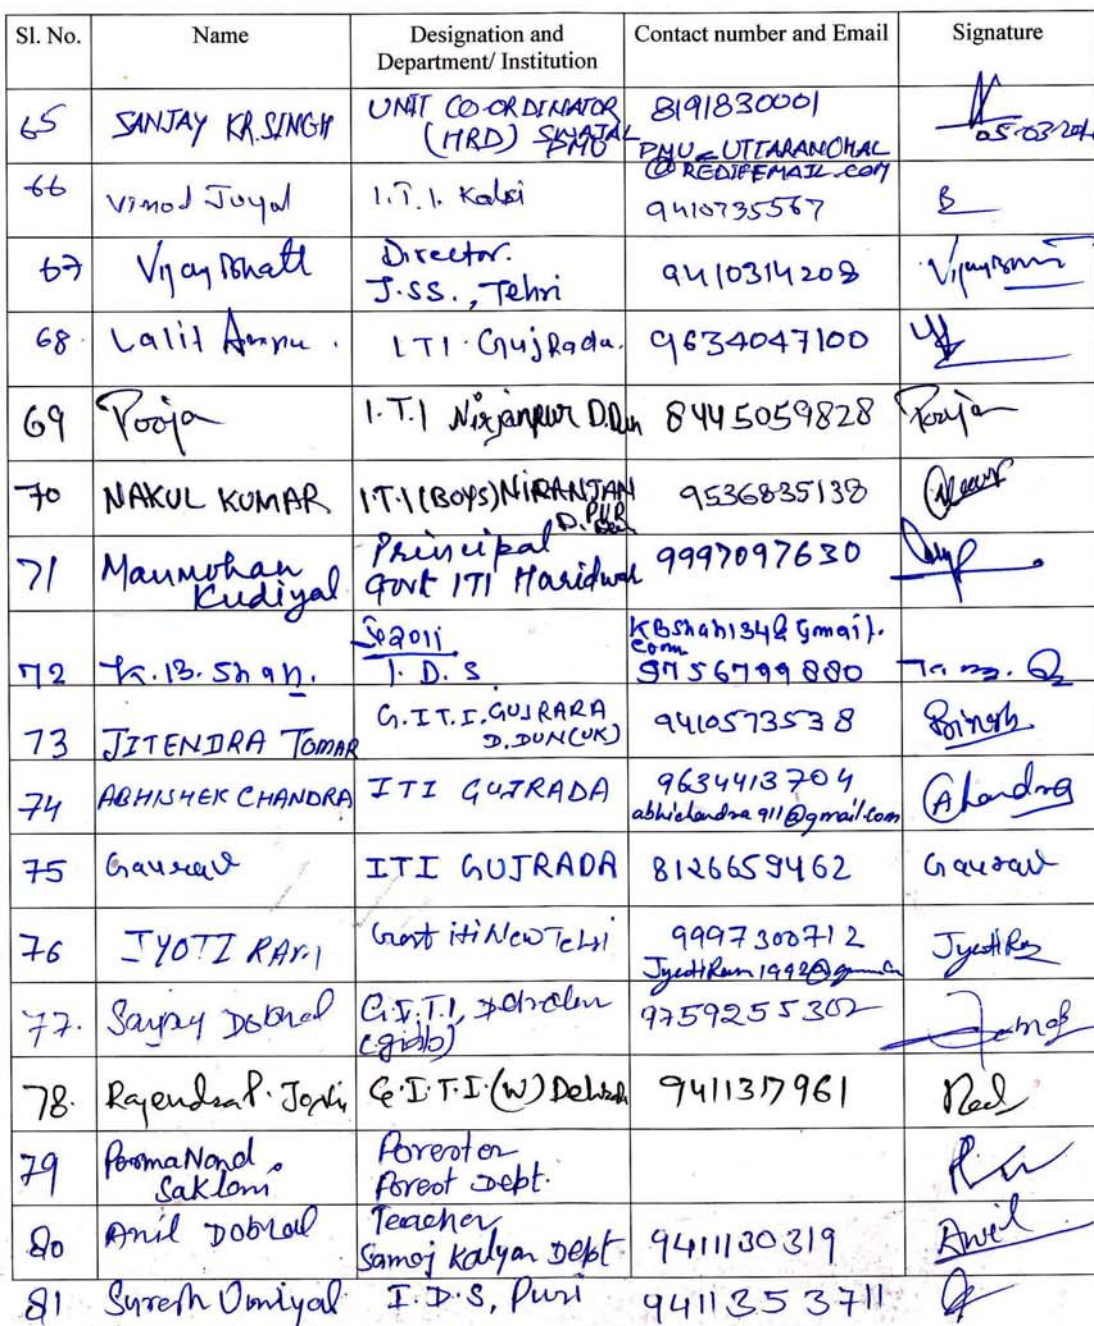 Sl. No. Name Designation and Department/ Institution Contact number and Email Signature
65 SANJAY KR. SINGH UNIT CO-ORDINATOR (HRD) PMU 8191830001
PMU_UTTARANCHAL
@REDIFFMAIL.COM
05-03-20
66 Vinod Juyal I.T.I. Kalsi 9410735567
67 Vijay Bhatt Director.
J.SS., Tehri 9410314208 Vijay
68. Lalit ITI Gujrada. 9634047100
69 Pooja I.T.I Niranjanpur D.Dun 8445059828 Pooja
70 NAKUL KUMAR I.T.I (BOYS) NIRANJAN
PUR
D. Dun 9536835138
71 Manmohan
Kudiyal Principal
Govt ITI Haridwar 9997097630
72 K.B. Shah. I.D.S KBShah134@gmail.
com
9756799880
73 JITENDRA TOMAR G.I.T.I. GUJRARA
D.DUN(UK) 9410573538
74 ABHISHEK CHANDRA ITI GUJRADA 9634413704
abhichandra911@gmail.com AChandra
75 Gaurav ITI GUJRADA 8126659462 Gaurav
76 JYOTI RANI Govt iti New Tehri 9997300712
77. Sanjay Dobhal G.I.T.I, 9759255302
78. Rajendra P. Joshi G.I.T.I.(W) 9411317961
79 Saklani Forester
Forest Dept.
80 Anil Dobhal Teacher,
Samaj Kalyan Dept 9411130319 Anil
81 Suresh Uniyal I.D.S, 9411353711